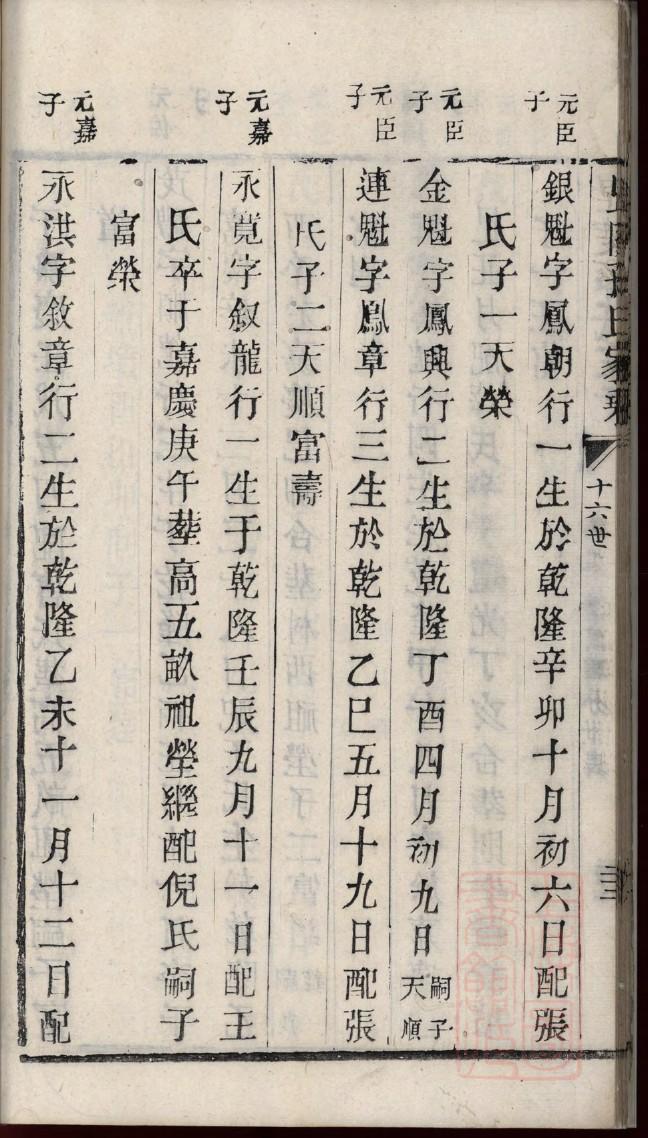 孫氏家乘
十六世
元臣子
銀魁字鳳朝行一生於乾隆辛卯十月初六日配張
氏子一天榮
元臣子
金魁字鳳興行二生於乾隆丁酉四月初九日嗣子天順
元臣子
連魁字鳳章行三生於乾隆乙巳五月十九日配張
氏子二天順富壽
元嘉子
永寬字叙龍行一生于乾隆壬辰九月十一日配王
氏卒于嘉慶庚午塟高五畝祖塋繼配倪氏嗣子
富榮
元嘉子
永洪字敘章行二生於乾隆乙未十一月十二日配